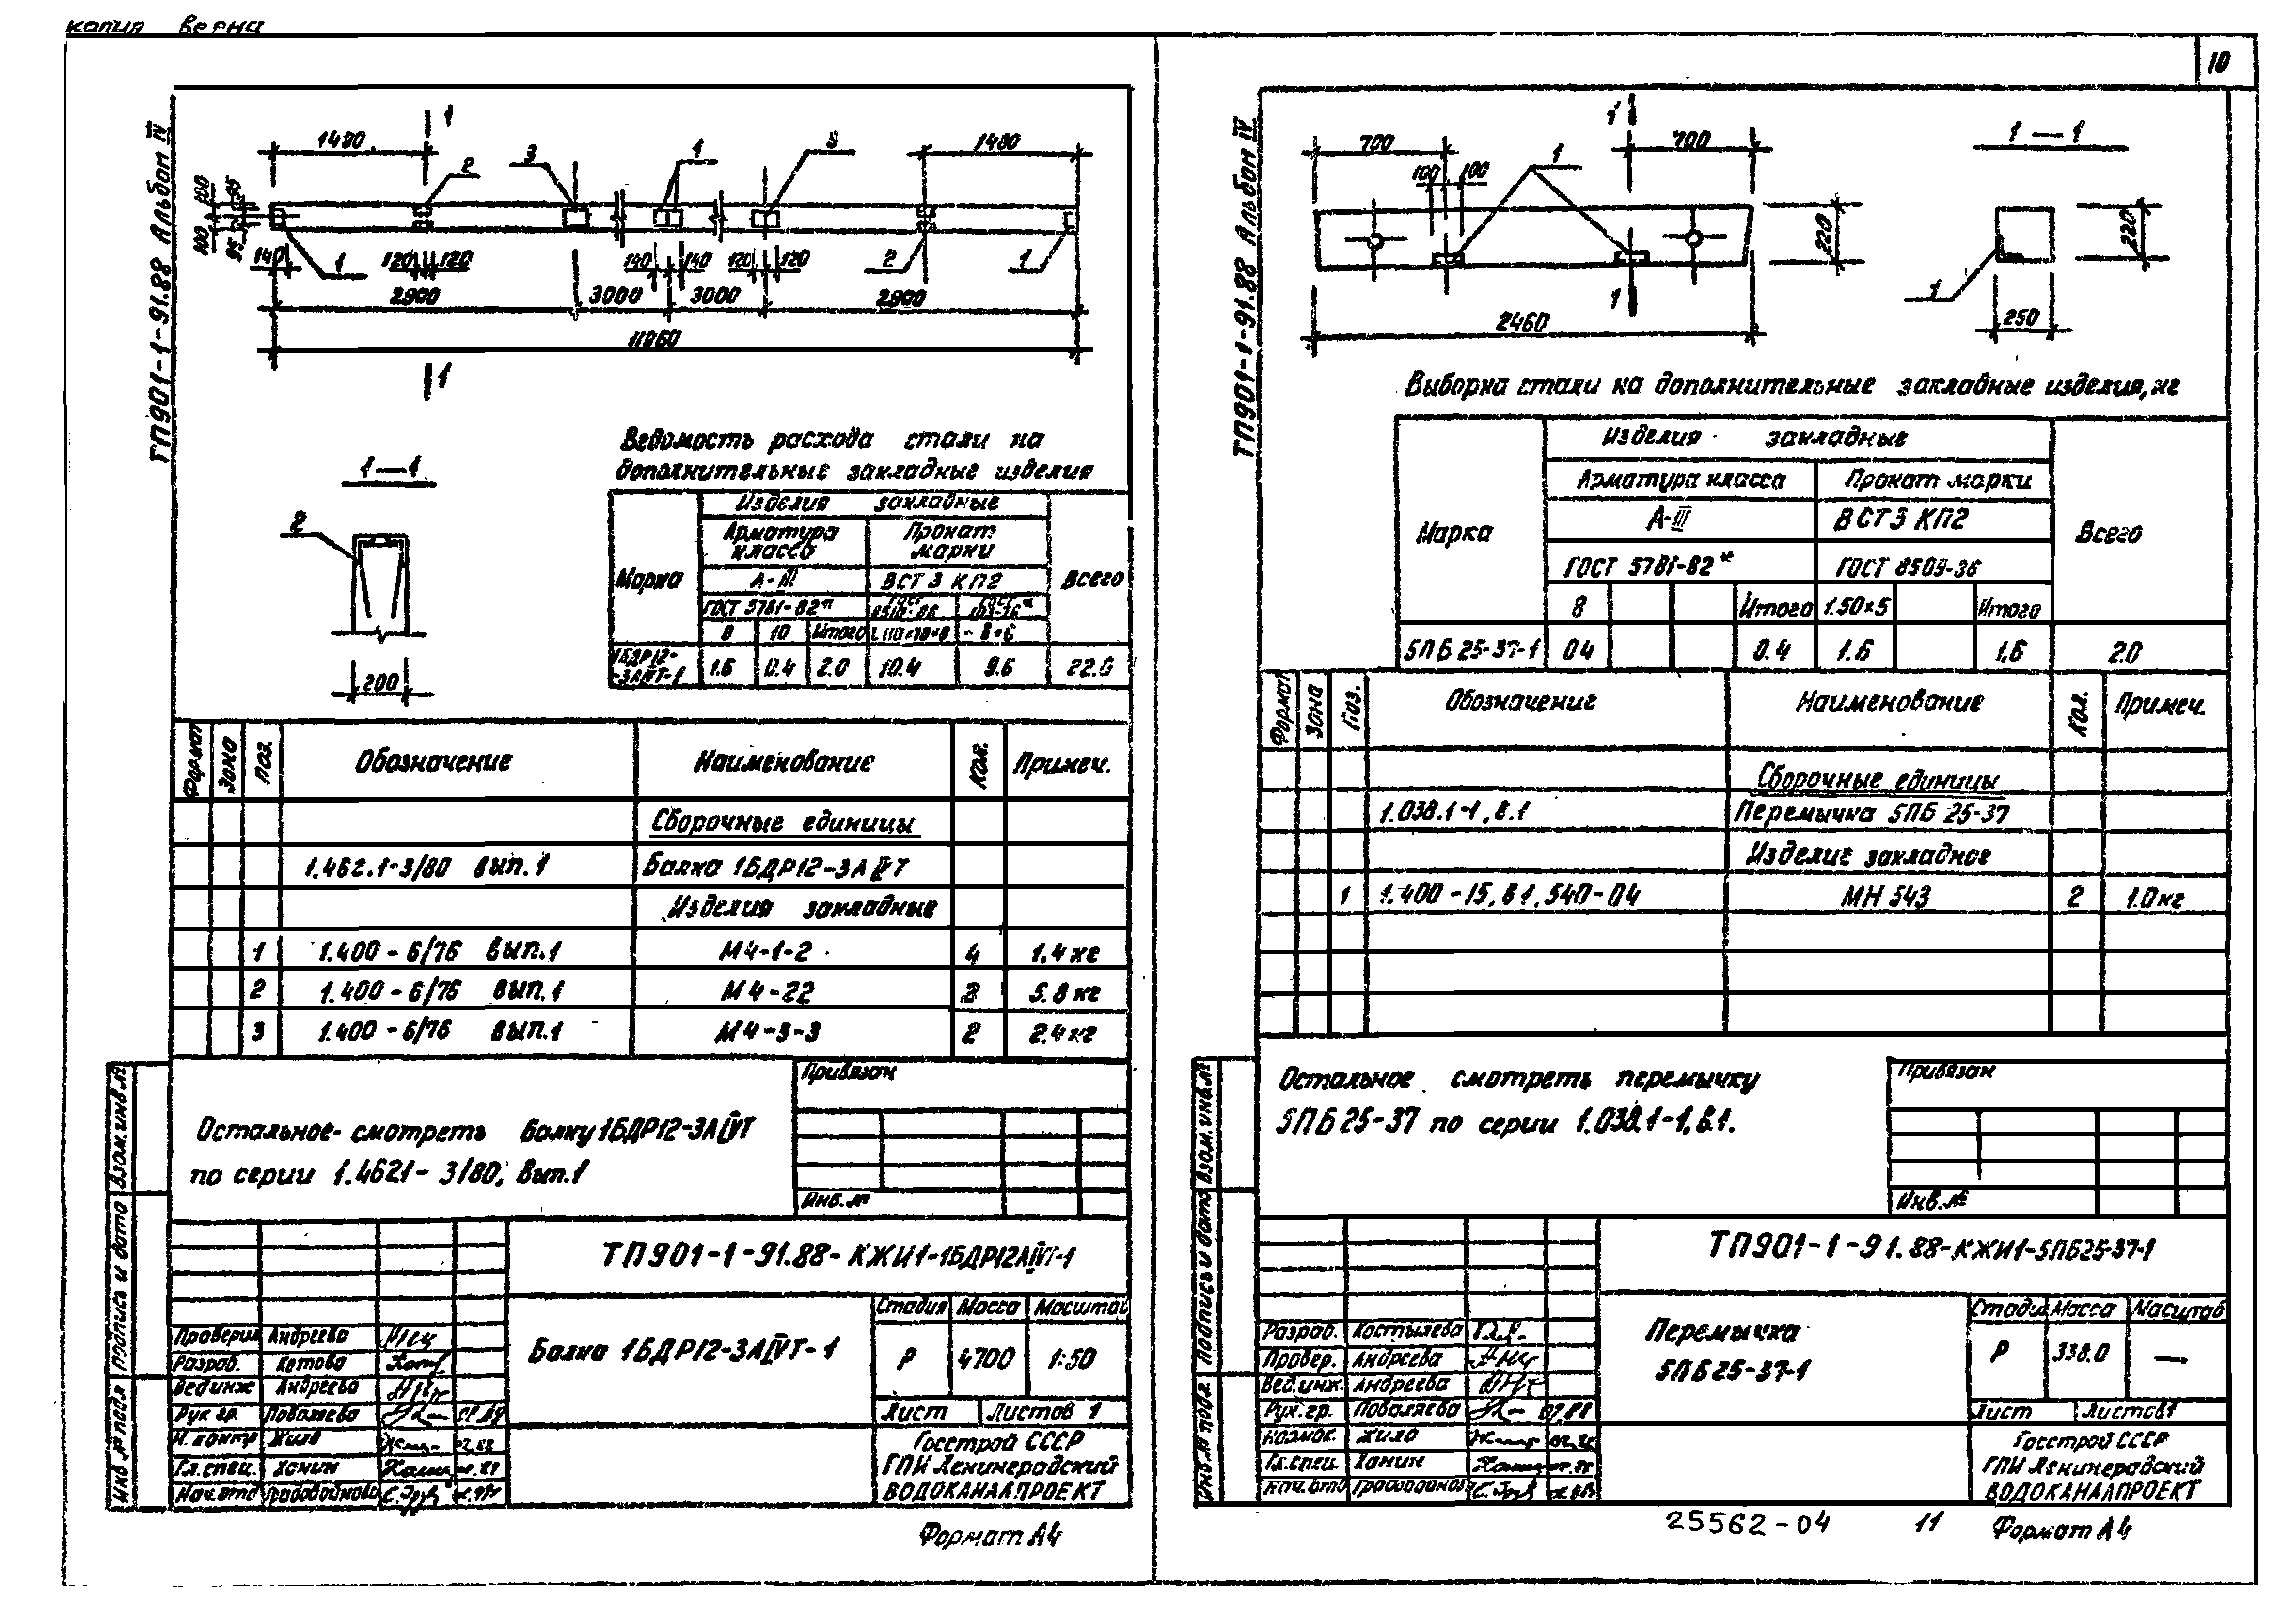 копия верна
10
ТП901-1-91.88 Альбом IV
1480
1
2
3
1
3
1480
100
95
100
95
140
1
120
120
140
140
120
120
2
1
2900
3000
3000
2900
11960
1
1—1
2
200
Ведомость расхода стали на
дополнительные закладные изделия
Марка
Изделия закладные
Всего
Арматура класса
Прокат марки
А-III
ВСТ 3 КП2
ГОСТ 5781-82*
8
10
Итого
1БДР12-
-3АIVТ-1
1.6
0.4
2.0
10.4
9.6
22.0
Формат
Зона
Поз.
Обозначение
Наименование
Кол.
Примеч.
Сборочные единицы
1.462.1-3/80 вып.1 Балка 1БДР12-3АIVТ
Изделия закладные
1 1.400-6/76 вып.1 М4-1-2 4 1,4 кг
2 1.400-6/76 вып.1 М4-22 5.8 кг
3 1.400-6/76 вып.1 М4-3-3 2 2.4 кг
Остальное смотреть балку 1БДР12-3АIVТ
по серии 1.4621-3/80, вып.1
Привязан
Инв.№
Взам.инв.№
Подпись и дата
Инв.№ подл.
ТП901-1-91.88-КЖИ1-1БДР12АIVТ-1
Балка 1БДР12-3АIVТ-1
Стадия Масса Масштаб
Р 4700 1:50
Лист Листов 1
Проверил Андреева
Разраб. Котова
Вед.инж Андреева
Рук гр. Поваляева
Н.контр Жила
Гл.спец. Ханин
Нач.отд
Госстрой СССР
ГПИ Ленинградский
ВОДОКАНАЛПРОЕКТ
Формат А4
ТП901-1-91.88 Альбом IV
700
1
700
100
100
1
220
1
2460
1—1
220
1
250
Выборка стали на дополнительные закладные изделия, кг
Марка
Изделия закладные
Всего
Арматура класса
Прокат марки
А-III
ВСТ3 КП2
ГОСТ 5781-82*
ГОСТ 8509-86
8
Итого
L50×5
Итого
5ПБ 25-37-1 04 0.4 1.6 1,6 2.0
Формат
Зона
Поз.
Обозначение
Наименование
Кол.
Примеч.
Сборочные единицы
1.038.1-1, в.1 Перемычка 5ПБ 25-37
Изделие закладное
1 1.400-15, в1, 540-04 МН 543 2 1.0 кг
Остальное смотреть перемычку
5ПБ 25-37 по серии 1.038.1-1, в.1.
Привязан
Инв.№
Взам.инв.№
Подпись и дата
Инв.№ подл.
ТП901-1-91.88-КЖИ1-5ПБ25-37-1
Перемычка
5ПБ25-37-1
Стадия Масса Масштаб
Р 338.0 —
Лист Листов 1
Разраб. Костылева
Провер. Андреева
Вед.инж. Андреева
Рук.гр. Поваляева
Жила
Гл.спец. Ханин
Нач.отд
Госстрой СССР
ГПИ Ленинградский
ВОДОКАНАЛПРОЕКТ
25562-04 11 Формат А4